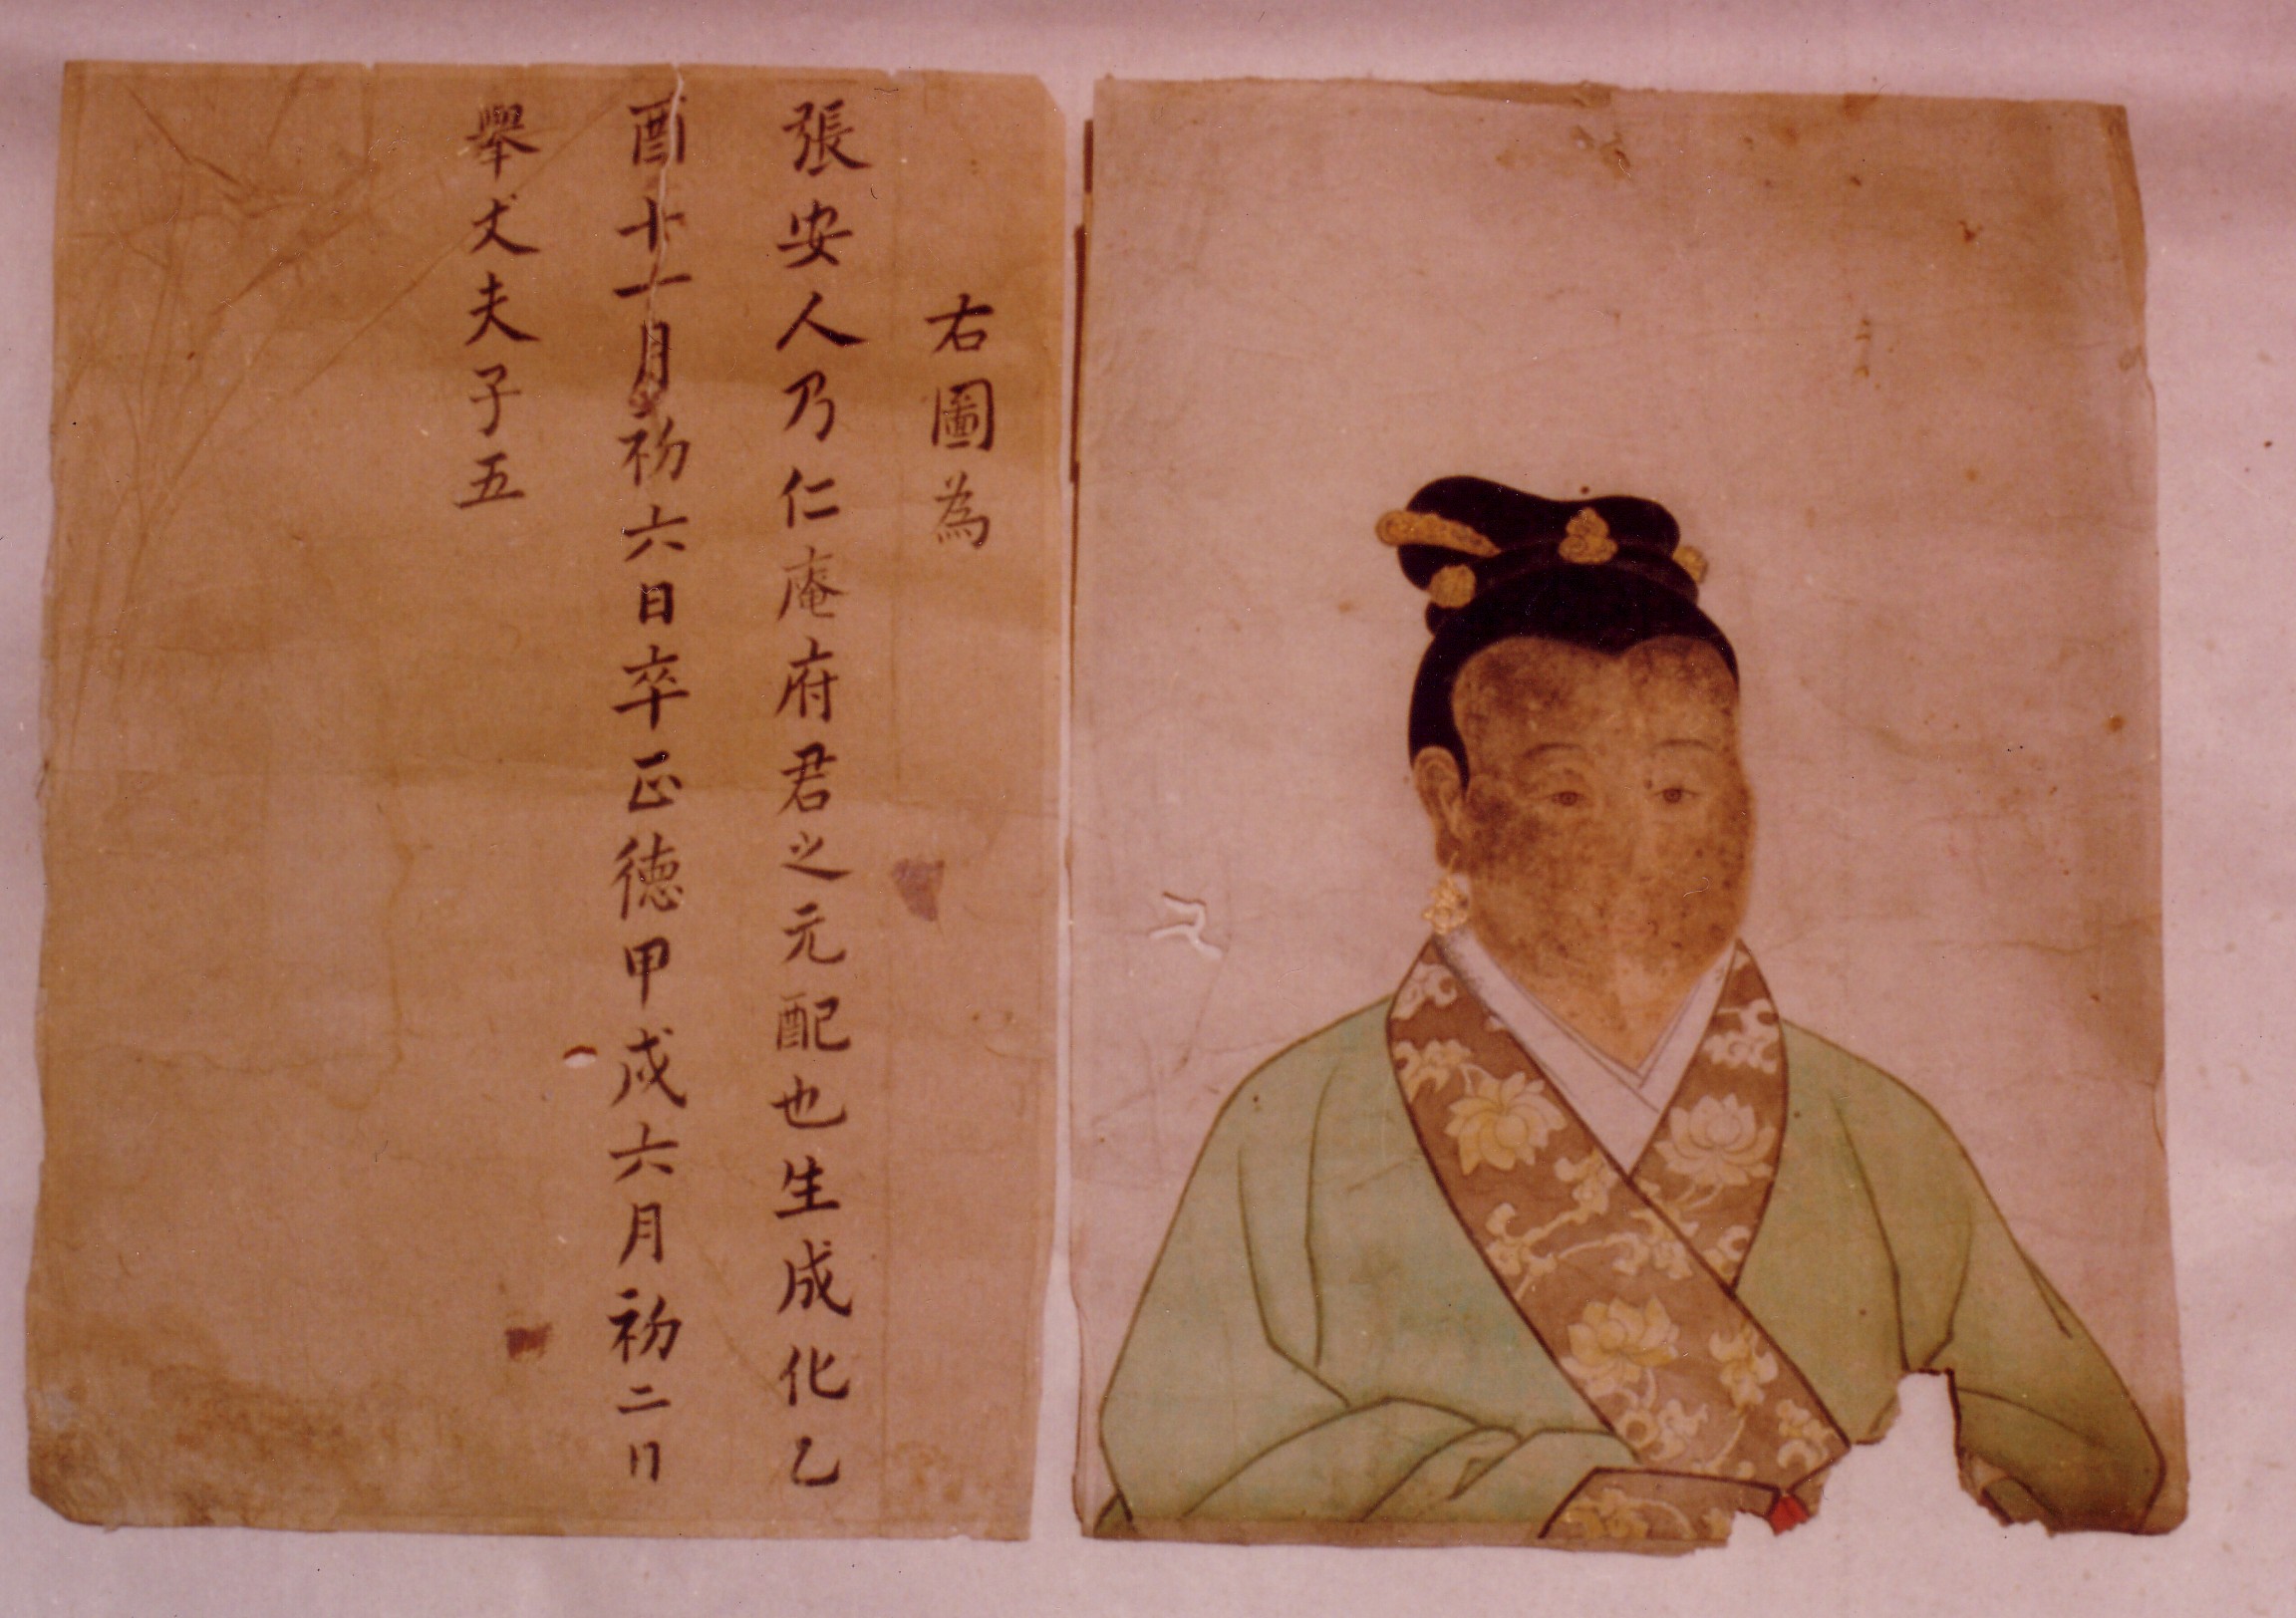 右圖為
張安人乃仁庵府君之元配也生成化乙
酉十一月初六日卒正徳甲戌六月初二日
舉丈夫子五